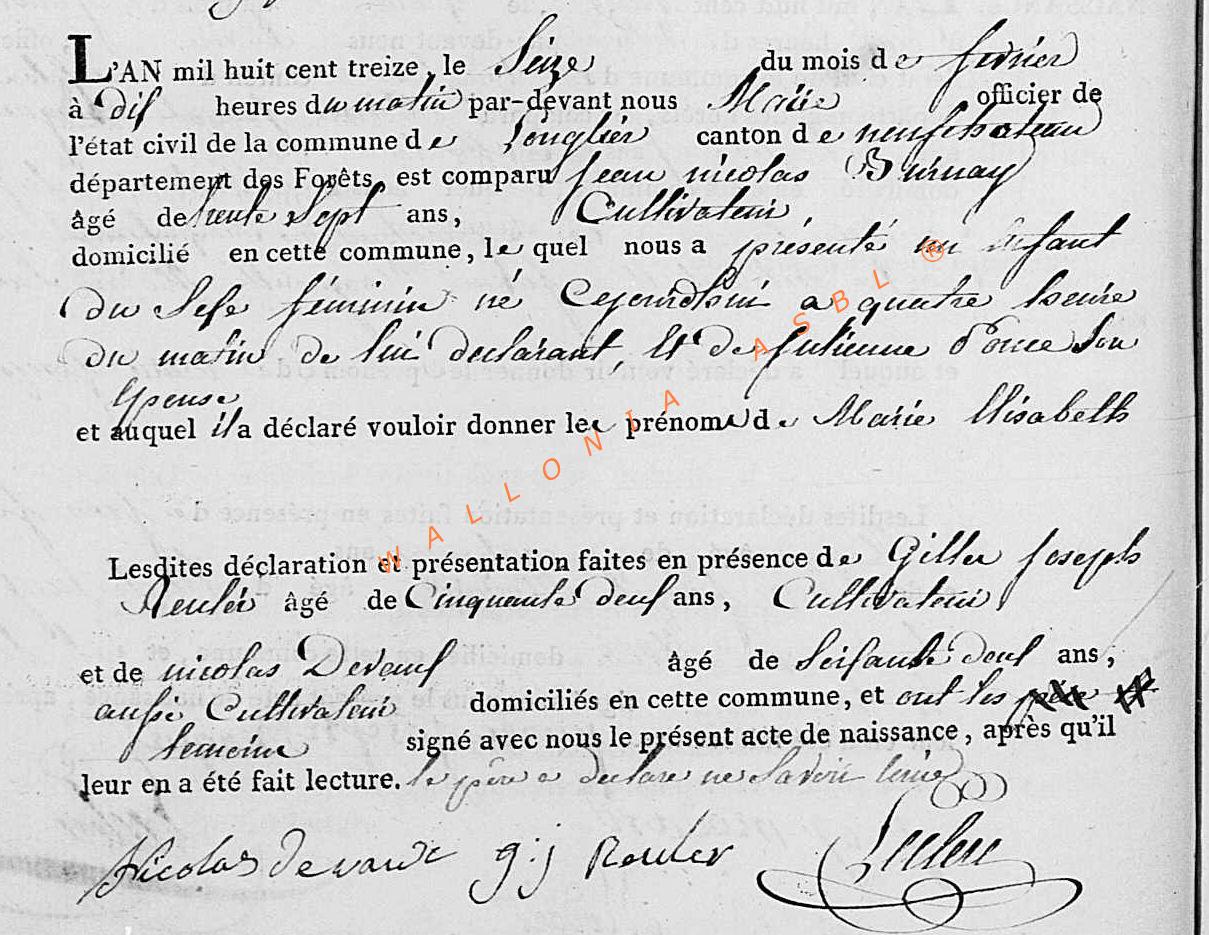 L'AN mil huit cent treize, le Seize du mois de fevrier
à dix heures du matin par-devant nous Maire officier de
l'état civil de la commune de Longlier canton de neufchateau
département des Forêts, est comparu jean nicolas Burnay
âgé de trente Sept ans, Cultivateur,
domicilié en cette commune, le quel nous a présenté un enfant
du Sexe feminin né Cejourdhui a quatre heure
du matin de lui declarant Et de julienne Ponce Son
Epouse
et auquel il a déclaré vouloir donner les prénoms de Marie Elisabeth
Lesdites déclaration et présentation faites en présence de Gille joseph
Reuler âgé de Cinquante deux ans, Cultivateur
et de nicolas Devaux âgé de Soixante deux ans,
aussi Cultivateur domiciliés en cette commune, et ont les
temoins signé avec nous le présent acte de naissance, après qu'il
leur en a été fait lecture. le père a declare ne Savoir
Nicolas devaux g:j Reuler Leclerc
WALLONIA ASBL ®